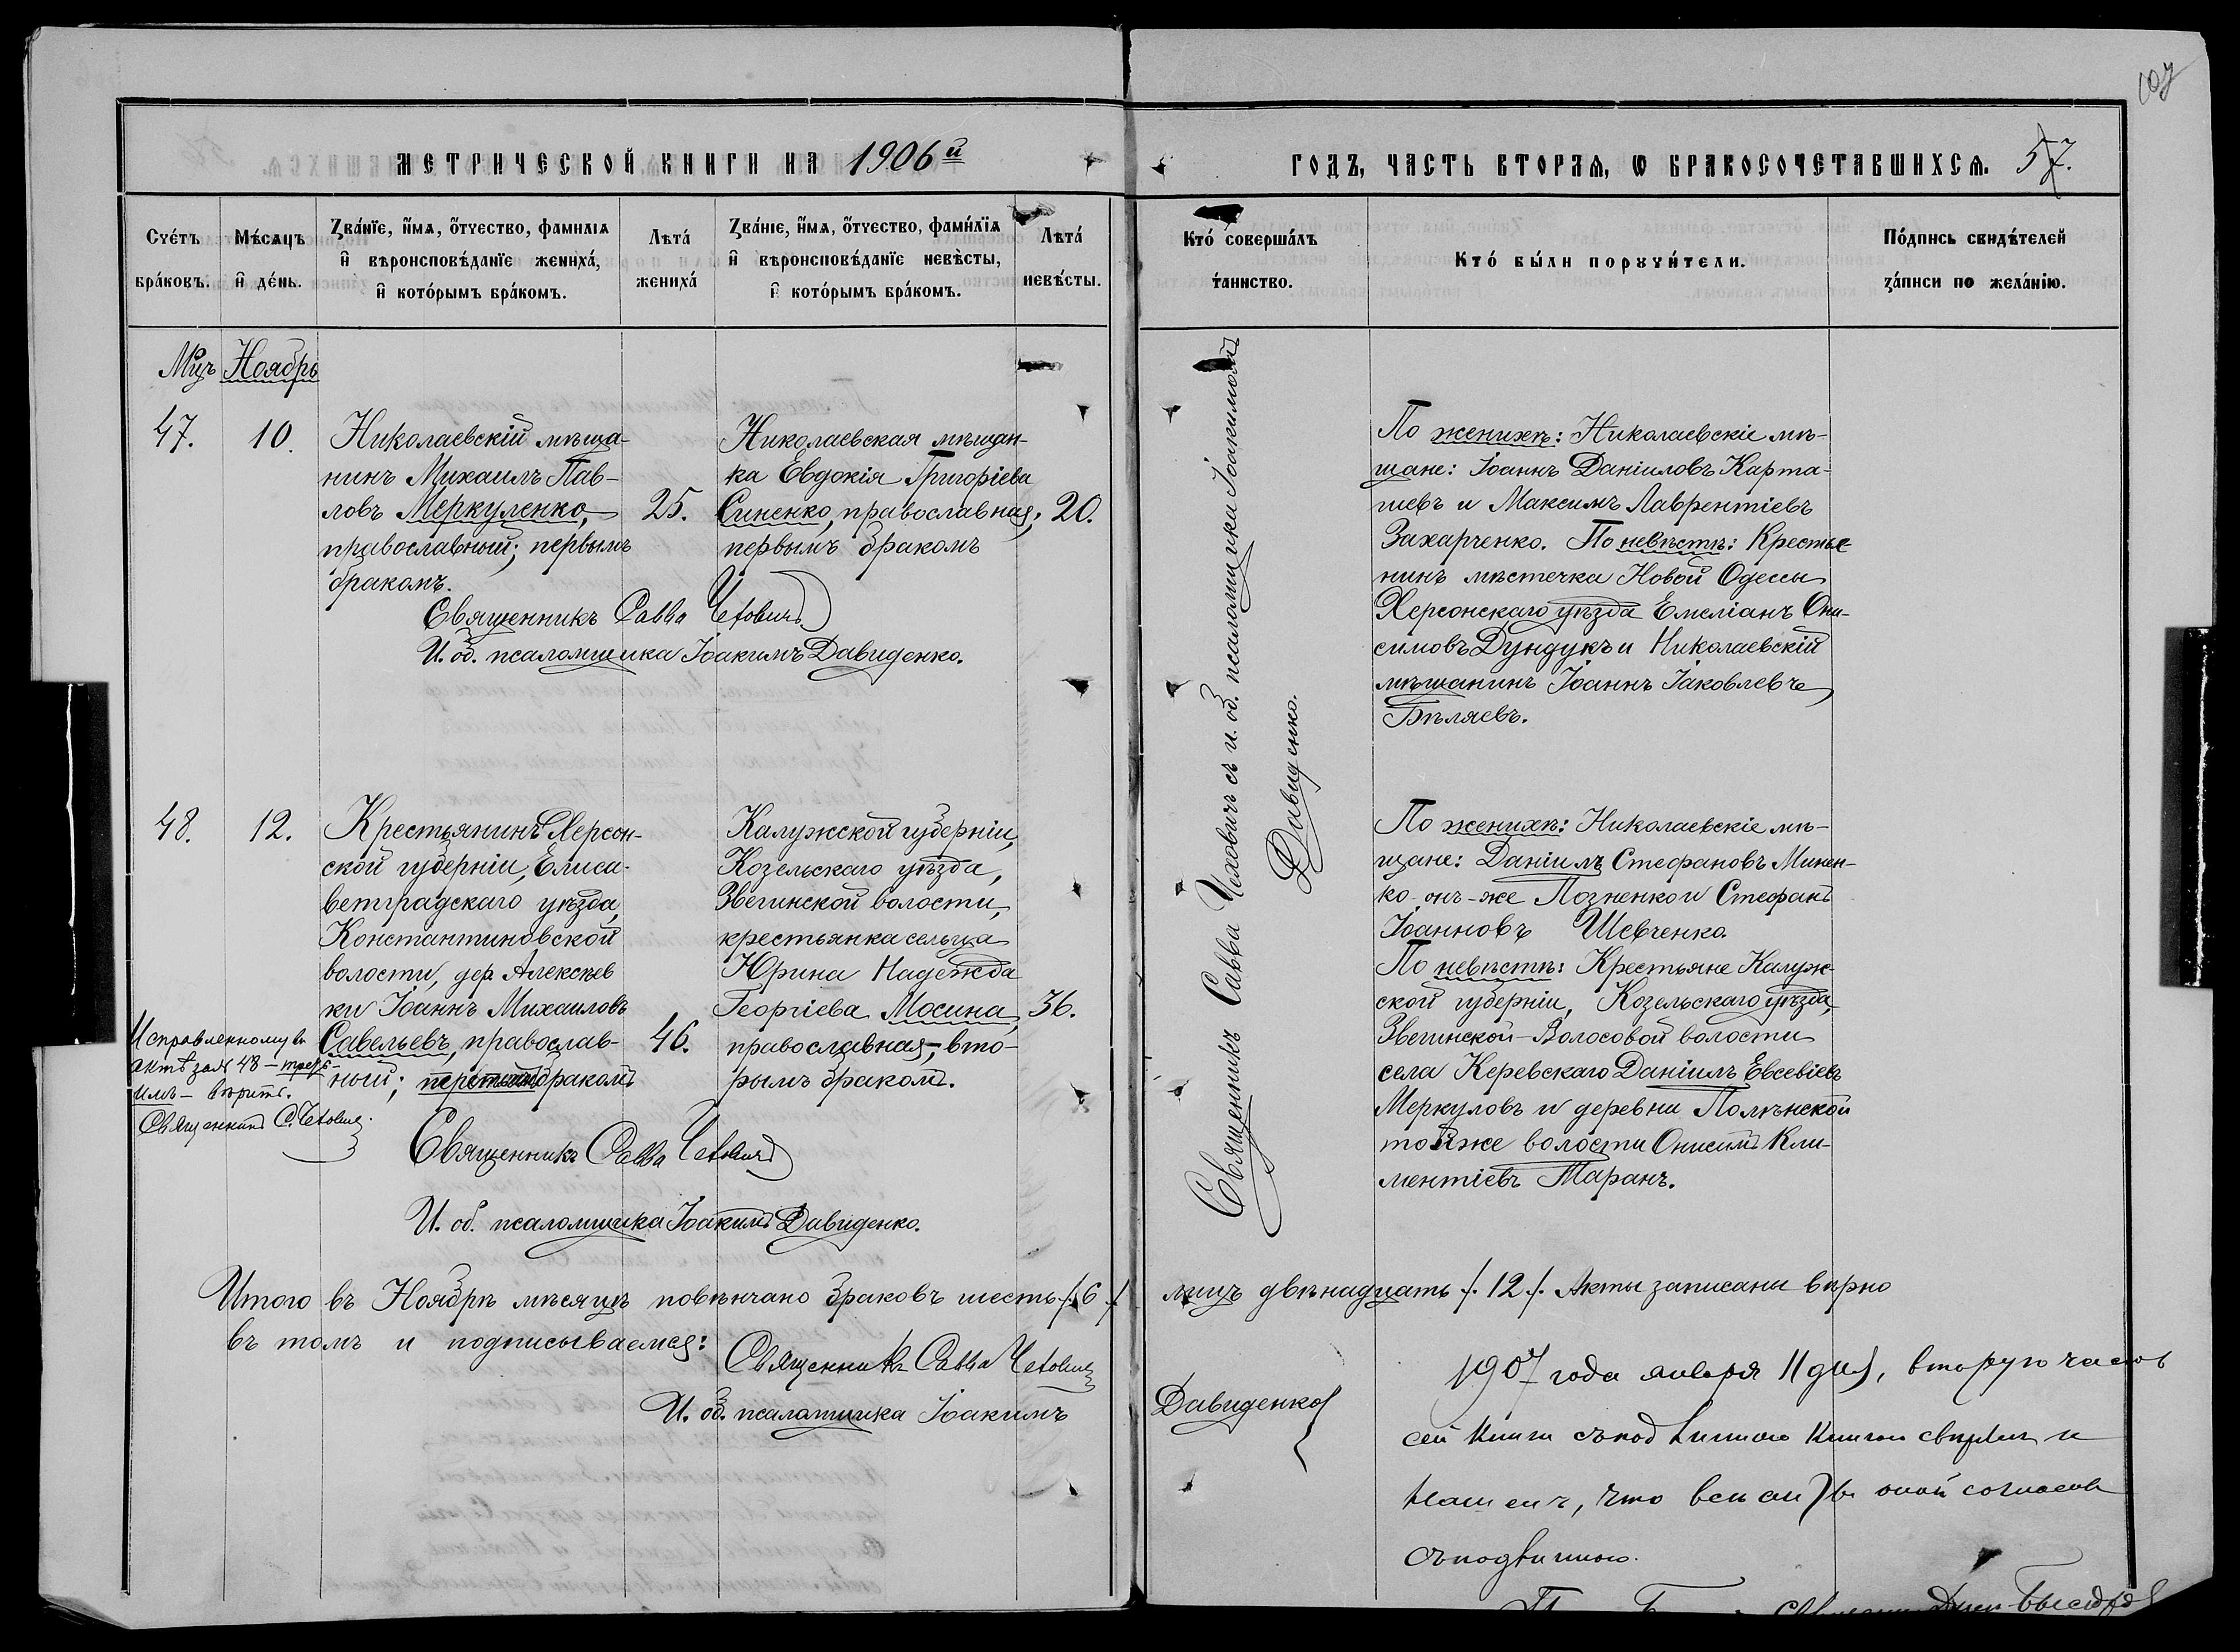 107
МЕТРИЧЕСКОЙ КНИГИ НА 1906й
ГОДЪ, ЧАСТЬ ВТОРАЯ, Ѡ БРАКОСОЧЕТАВШИХСЯ. 57.
Счетъ браковъ.
Мѣсяцъ и день.
Званіе, имя, отчество, фамилія
и вѣроисповѣданіе жениха,
и которымъ бракомъ.
Лѣта жениха
Званіе, имя, отчество, фамилія
и вѣроисповѣданіе невѣсты,
и которымъ бракомъ.
Лѣта невѣсты.
Кто совершалъ таинство.
Кто были поручители.
Подпись свидѣтелей
записи по желанію.
Мцъ Ноябрь
47.
10.
Николаевскій мѣща-
нинъ Михаилъ Пав-
ловъ Меркуленко,
православный; первымъ
бракомъ.
25.
Николаевская мѣщан-
ка Евдокія Григоріева
Синенко, православная,
первымъ бракомъ
20.
Священникъ Савва Чехович
И. об. псаломщика Іоакимъ Давиденко.
Священникъ Савва Чеховичъ съ и. об. псаломщика Іоакимомъ
Давиденко.
По женихѣ: Николаевскіе мѣ-
щане: Іоаннъ Даніиловъ Карта-
шевъ и Максимъ Лаврентіевъ
Захарченко. По невѣстѣ: Крестья-
нинъ мѣстечка Новой Одессы
Херсонскаго уѣзда Емеліанъ Они-
симовъ Дундукъ и Николаевскій
мѣщанинъ Іоаннъ Іаковлевъ
Бѣляевъ.
48.
12.
Крестьянинъ Херсон-
ской губерніи, Елиса-
ветградскаго уѣзда,
Константиновской
волости, дер. Алексѣев
ки Іоаннъ Михаиловъ
Савельевъ, православ-
ный; бракомъ
46.
Исправленному въ
актѣ за № 48 – треть-
имъ – вѣрить.
Священникъ С. Чехович
Калужской губерніи,
Козельскаго уѣзда,
Звегинской волости,
крестьянка сельца
Юрина Надежда
Георгіева Мосина,
православная, вто-
рымъ бракомъ.
36.
Священникъ Савва Чехович
И. об. псаломщика Іоакимъ Давиденко.
По женихѣ: Николаевскіе мѣ-
щане: Даніилъ Стефановъ Минен-
ко онъ-же Позненко и Стефанъ
Іоанновъ Шевченко.
По невѣстѣ: Крестьяне Калуж-
ской губерніи, Козельскаго уѣзда,
Звегинской-Волосовой волости
села Керевскаго Даніилъ Евсевіевъ
Меркуловъ и деревни Полянской
той же волости Онисимъ Кли-
ментіевъ Таранъ.
Итого въ Ноябрѣ мѣсяцѣ повѣнчано браковъ шесть /. 6 ./
лицъ двѣнадцать /. 12 /. Акты записаны вѣрно
въ томъ и подписываемся:
Священникъ Савва Чехович
И. об. псаломщика Іоакимъ
Давиденко
1907 года января 11 дня, вторую часть
сей книги съ подлинною книгою свѣрялъ и
нашелъ, что въ оной согласны
съ подлинною.